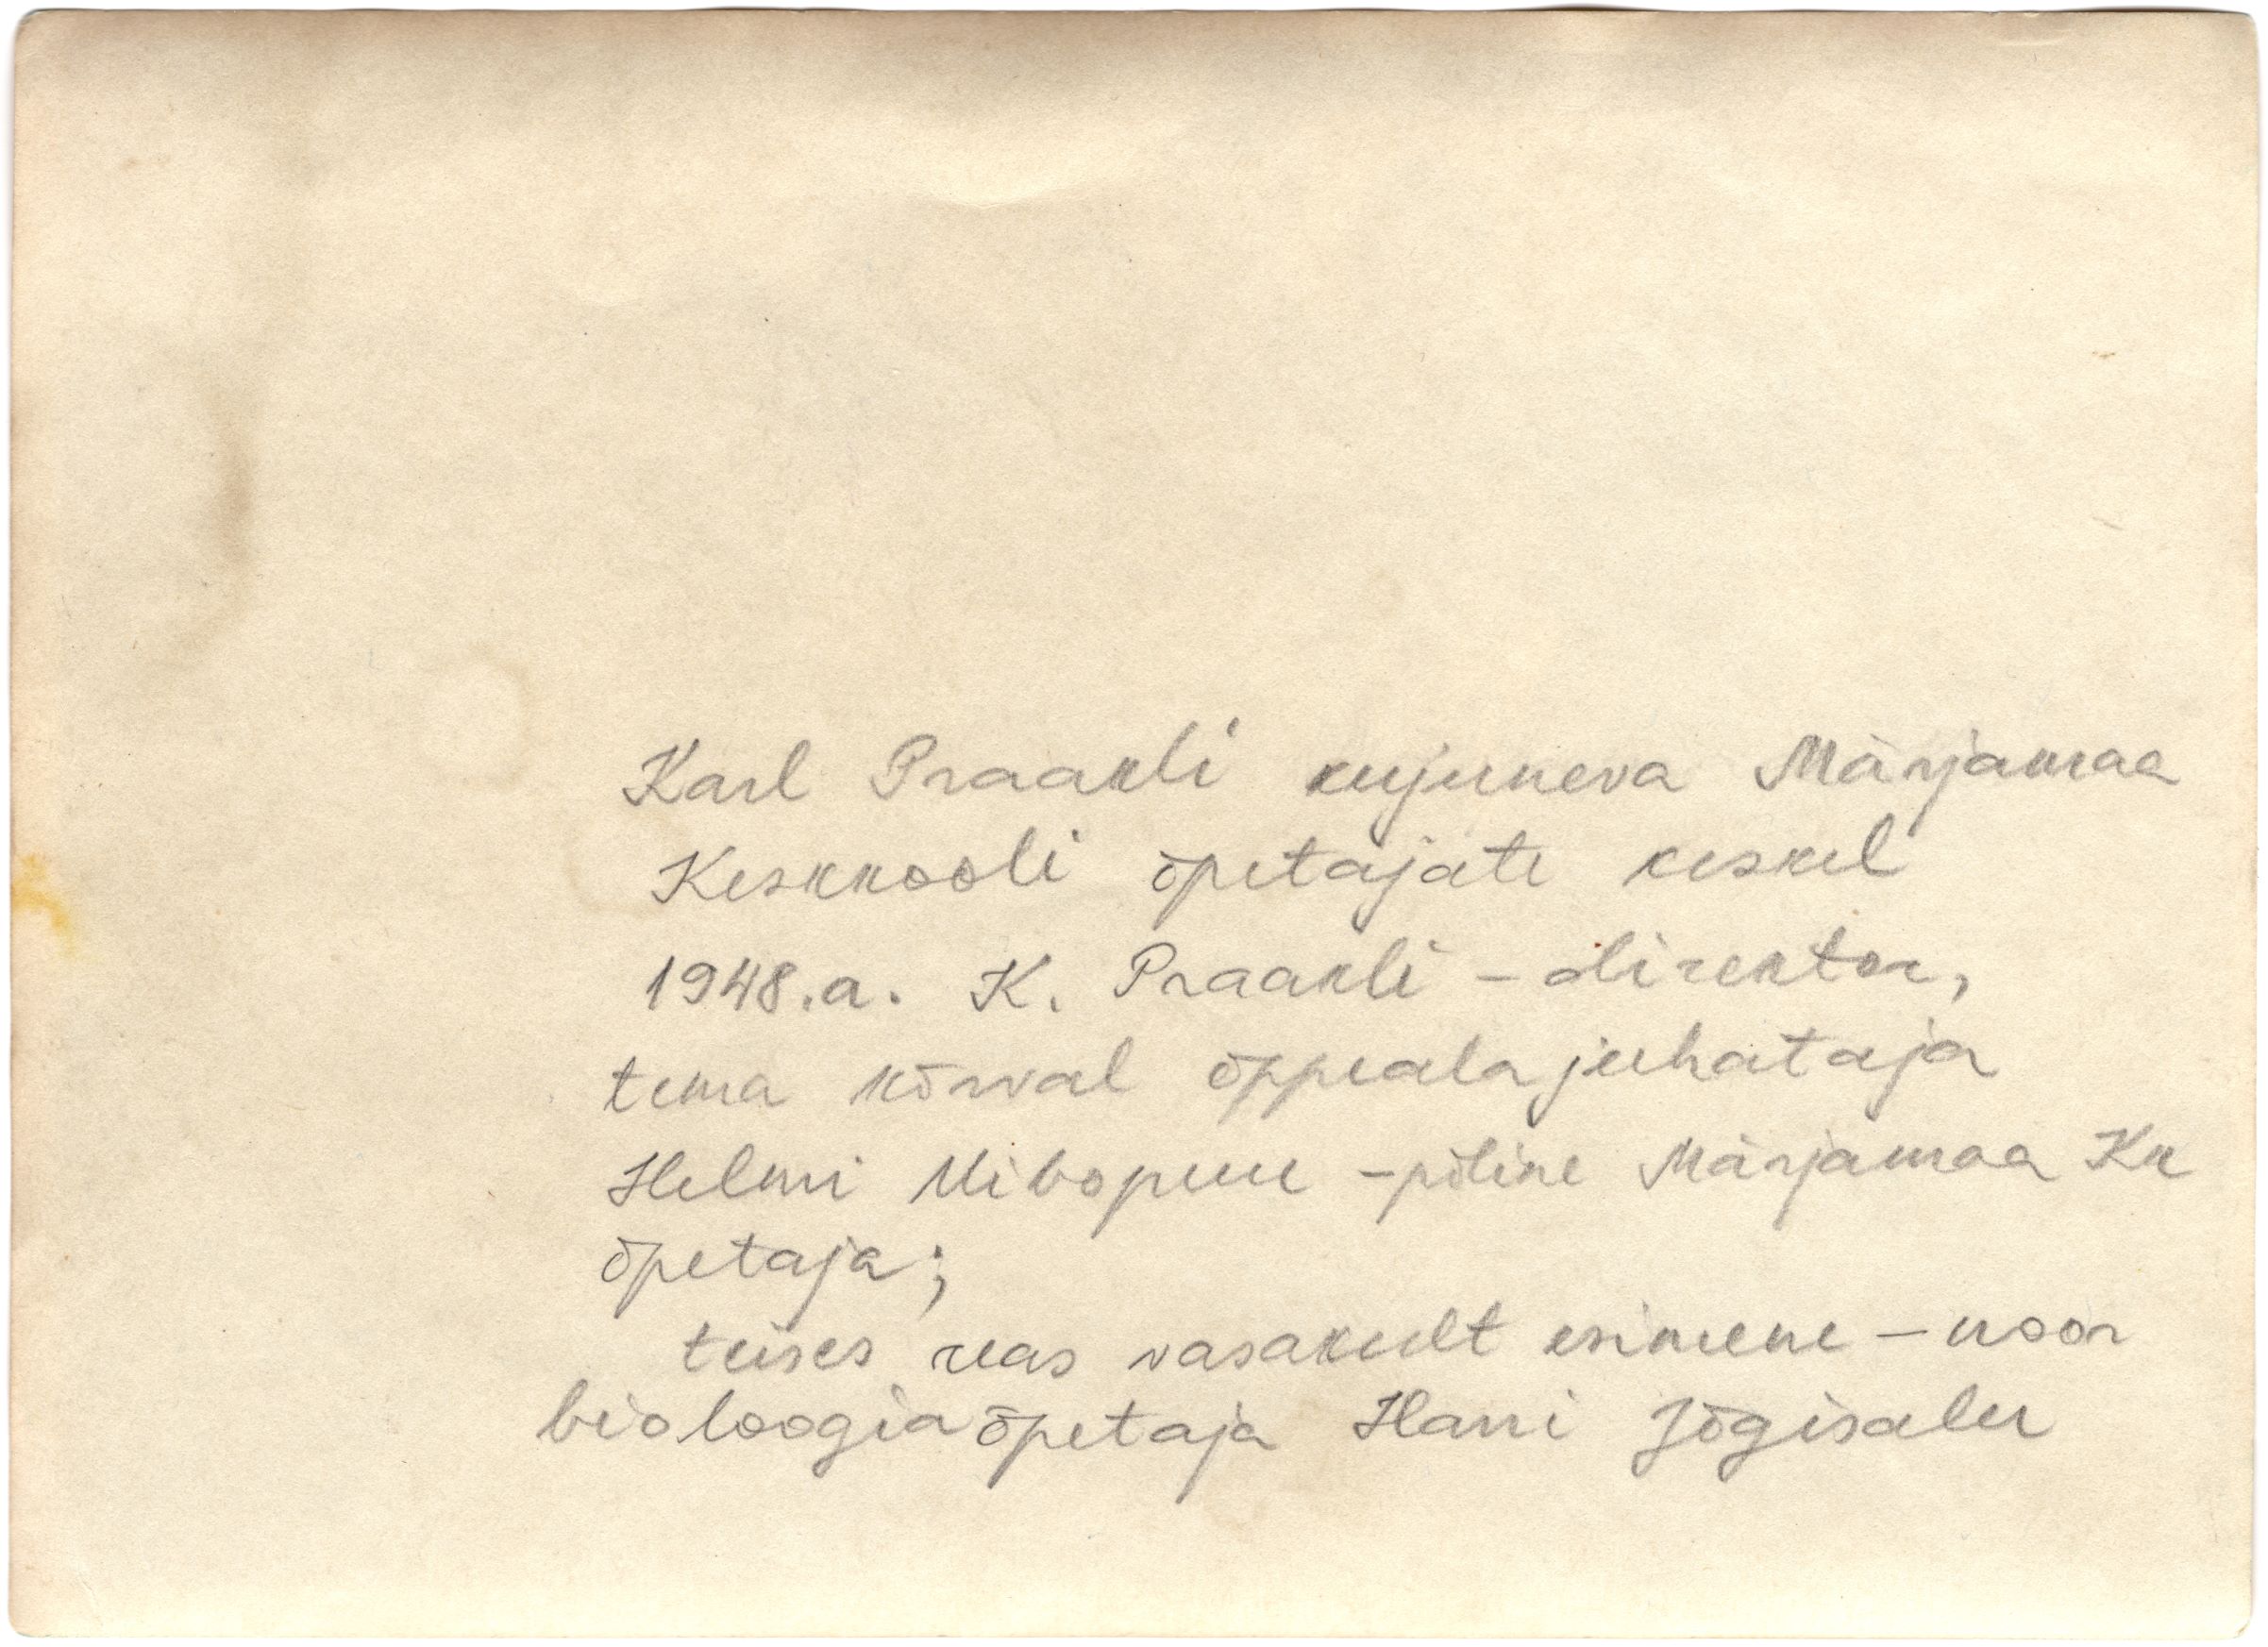 Karl Praakli kujuneva Märjamaa
Keskkooli õpetajate keskel
1948.a. K. Praakli - direktor,
tema kõrval õppealajuhataja
Helmi Uibopuu - põline Märjamaa Kk
õpetaja;
teises reas vasakult esimene - noor
bioloogiaõpetaja Harri Jõgisalu